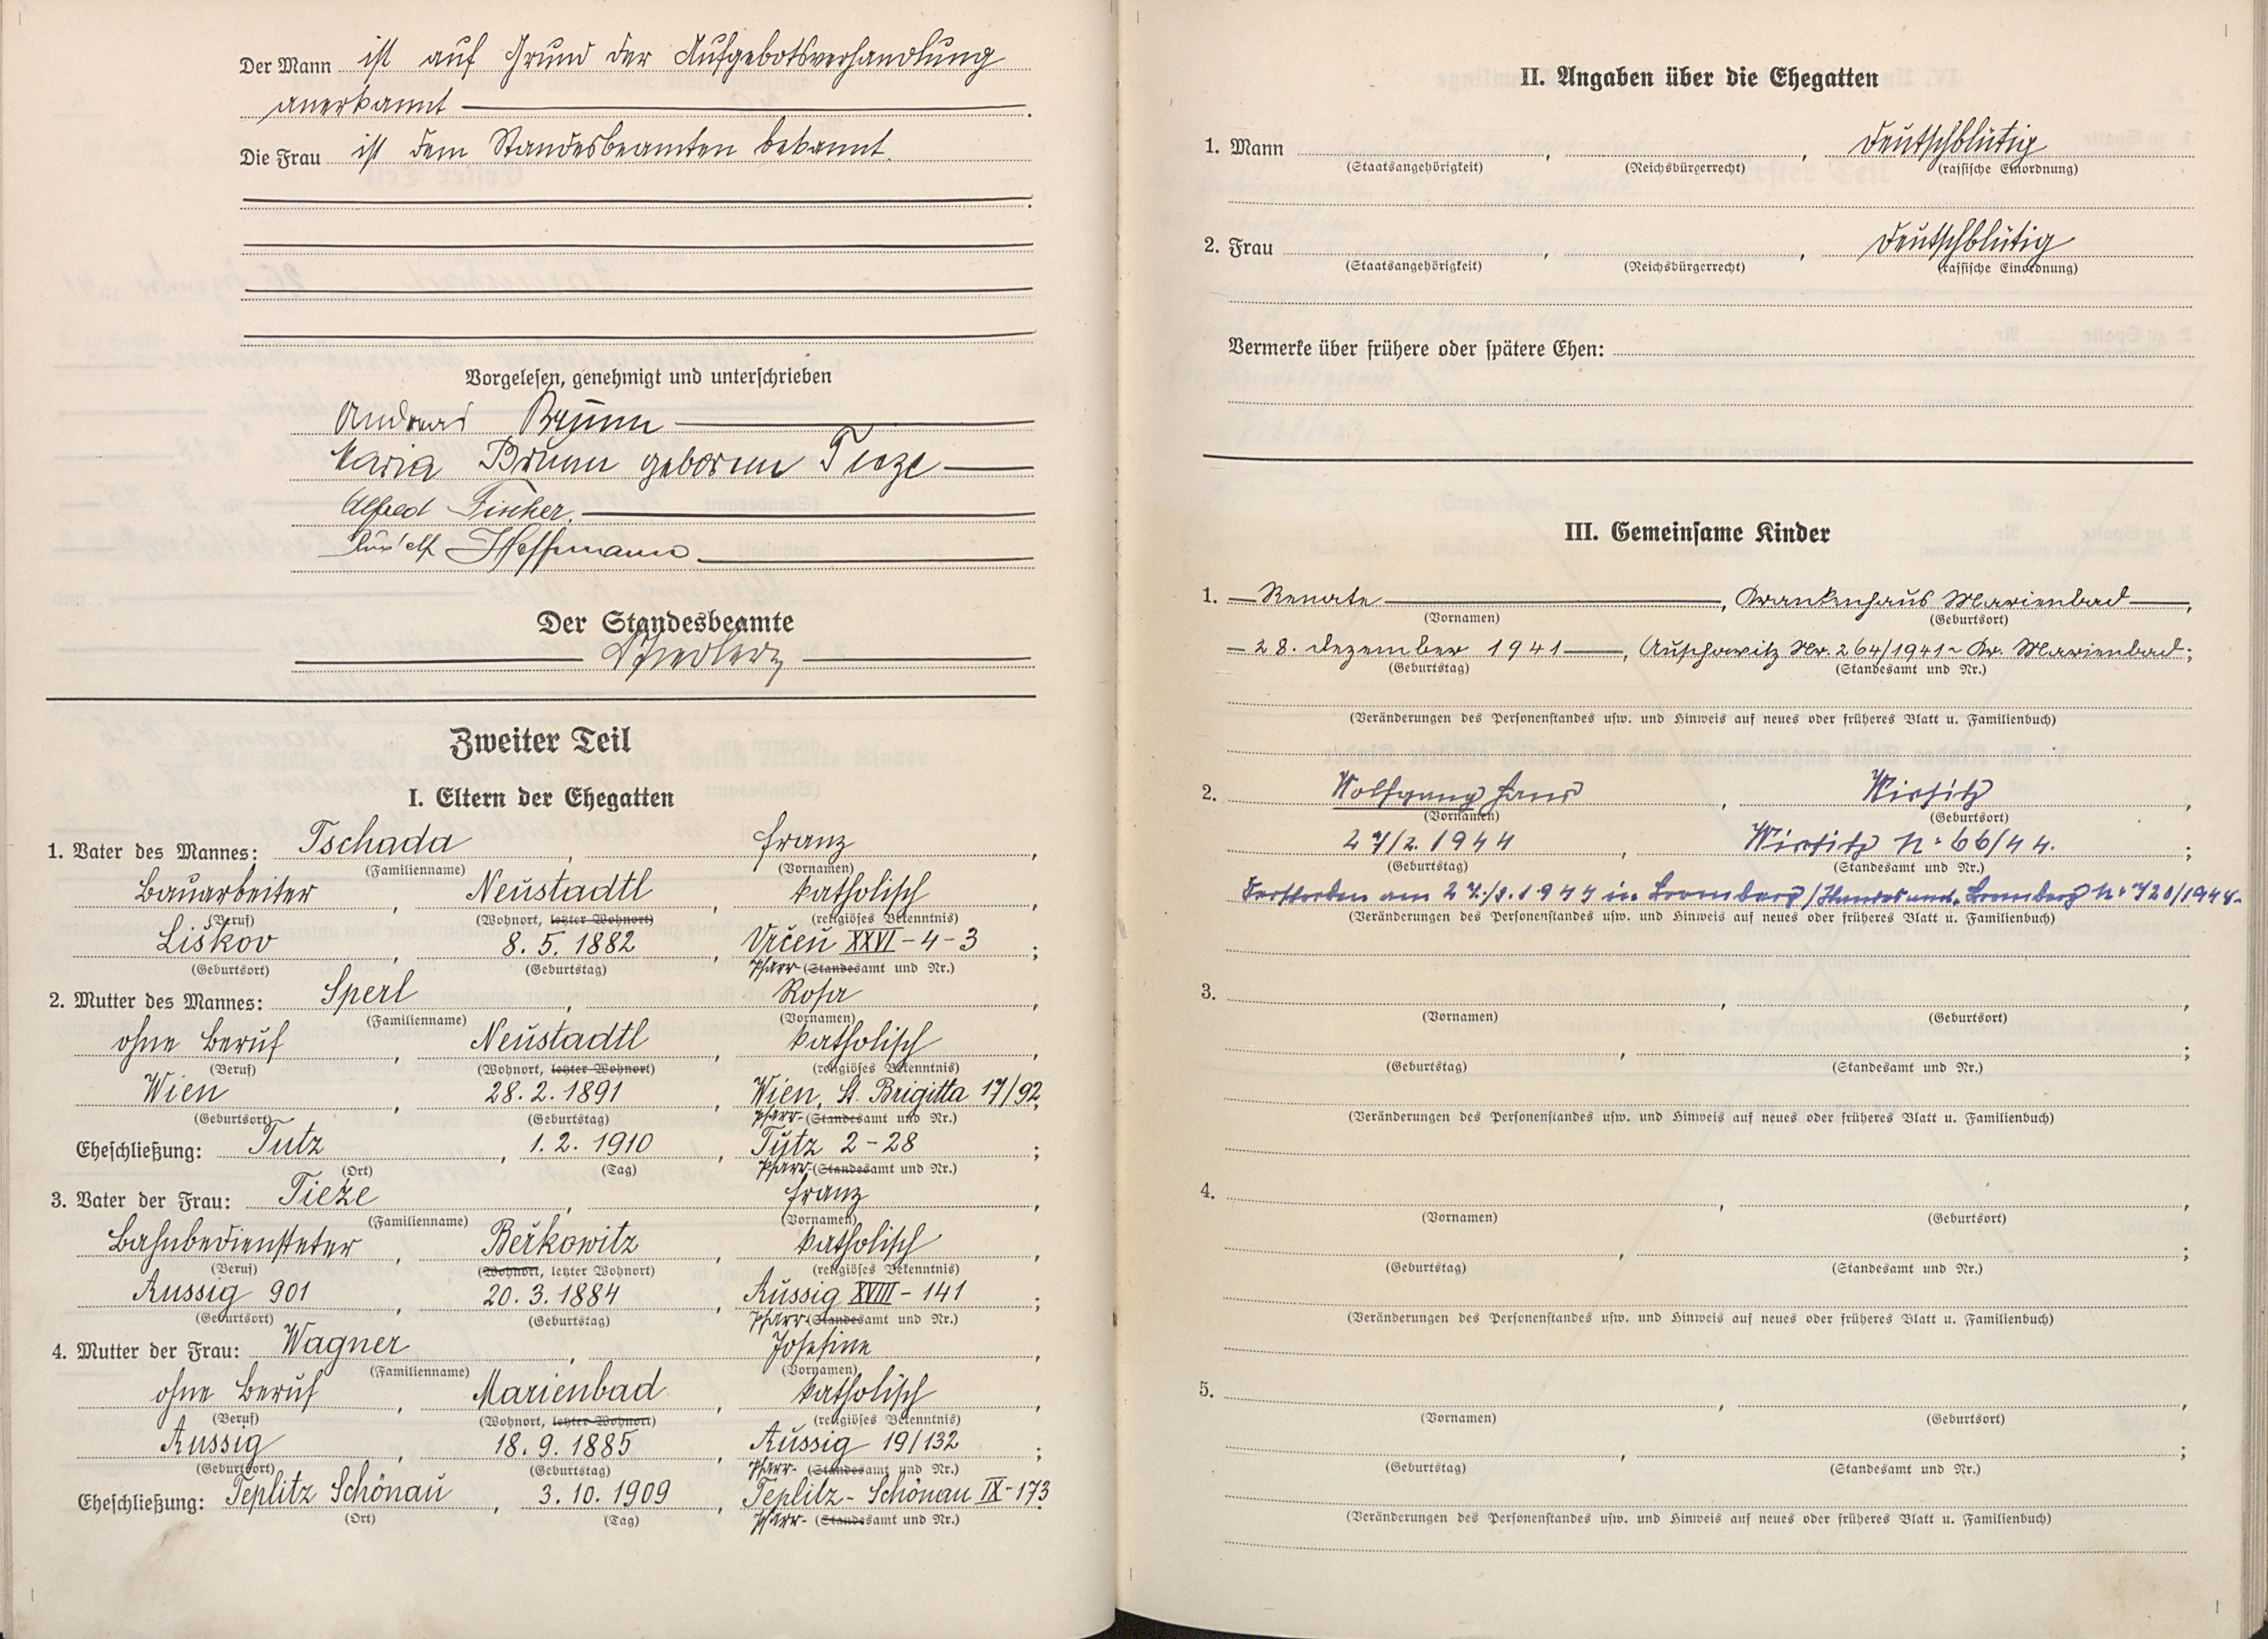 Der Mann ist auf Grund der Aufgebotsverhandlung
anerkannt
Die Frau ist dem Standesbeamten bekannt.
Vorgelesen, genehmigt und unterschrieben
Andreas Brunn
Maria Brunn geborene Tieze
Alfred Fischer.
Rudolf Hoffmann
Der Standesbeamte
Zweiter Teil
I. Eltern der Ehegatten
1. Vater des Mannes: Tschada, Franz,
(Familienname) (Vornamen)
Bauarbeiter, Neustadtl, katholisch,
(Beruf) (Wohnort, letzter Wohnort) (religiöses Bekenntnis)
Liskov, 8. 5. 1882, Vrčeň XXVI - 4 - 3;
(Geburtsort) (Geburtstag) Pfarr (Standesamt und Nr.)
2. Mutter des Mannes: Sperl, Rosa,
(Familienname) (Vornamen)
ohne Beruf, Neustadtl, katholisch,
(Beruf) (Wohnort, letzter Wohnort) (religiöses Bekenntnis)
Wien, 28. 2. 1891, Wien, St. Brigitta 17/92;
(Geburtsort) (Geburtstag) Pfarr- (Standesamt und Nr.)
Eheschließung: Tutz, 1. 2. 1910, Tutz 2 - 28;
(Ort) (Tag) Pfarr- (Standesamt und Nr.)
3. Vater der Frau: Tieze, Franz,
(Familienname) (Vornamen)
Bahnbediensteter, Berkowitz, katholisch,
(Beruf) (Wohnort, letzter Wohnort) (religiöses Bekenntnis)
Aussig 901, 20. 3. 1884, Aussig XVIII - 141;
(Geburtsort) (Geburtstag) Pfarr (Standesamt und Nr.)
4. Mutter der Frau: Wagner, Josefine,
(Familienname) (Vornamen)
ohne Beruf, Marienbad, katholisch,
(Beruf) (Wohnort, letzter Wohnort) (religiöses Bekenntnis)
Aussig, 18. 9. 1885, Aussig 19/132;
(Geburtsort) (Geburtstag) Pfarr- (Standesamt und Nr.)
Eheschließung: Teplitz Schönau, 3. 10. 1909, Teplitz - Schönau IX - 173
(Ort) (Tag) Pfarr- (Standesamt und Nr.)
II. Angaben über die Ehegatten
1. Mann , , deutschblütig
(Staatsangehörigkeit) (Reichsbürgerrecht) (rassische Einordnung)
2. Frau , , deutschblütig
(Staatsangehörigkeit) (Reichsbürgerrecht) (rassische Einordnung)
Vermerke über frühere oder spätere Ehen:
III. Gemeinsame Kinder
1. Renate, Krankenhaus Marienbad,
(Vornamen) (Geburtsort)
28. Dezember 1941, Auschowitz Nr. 264/1941 - Kr. Marienbad;
(Geburtstag) (Standesamt und Nr.)
(Veränderungen des Personenstandes usw. und Hinweis auf neues oder früheres Blatt u. Familienbuch)
2. Wolfgang Hans, Wirsitz,
(Vornamen) (Geburtsort)
27/2. 1944, Wirsitz No 66/44.;
(Geburtstag) (Standesamt und Nr.)
Verstorben am 27./8. 1944 in Bromberg / Standesamt Bromberg No 720/1944.
(Veränderungen des Personenstandes usw. und Hinweis auf neues oder früheres Blatt u. Familienbuch)
3. , ,
(Vornamen) (Geburtsort)
(Geburtstag) (Standesamt und Nr.)
(Veränderungen des Personenstandes usw. und Hinweis auf neues oder früheres Blatt u. Familienbuch)
4. , ,
(Vornamen) (Geburtsort)
(Geburtstag) (Standesamt und Nr.)
(Veränderungen des Personenstandes usw. und Hinweis auf neues oder früheres Blatt u. Familienbuch)
5. , ,
(Vornamen) (Geburtsort)
(Geburtstag) (Standesamt und Nr.)
(Veränderungen des Personenstandes usw. und Hinweis auf neues oder früheres Blatt u. Familienbuch)